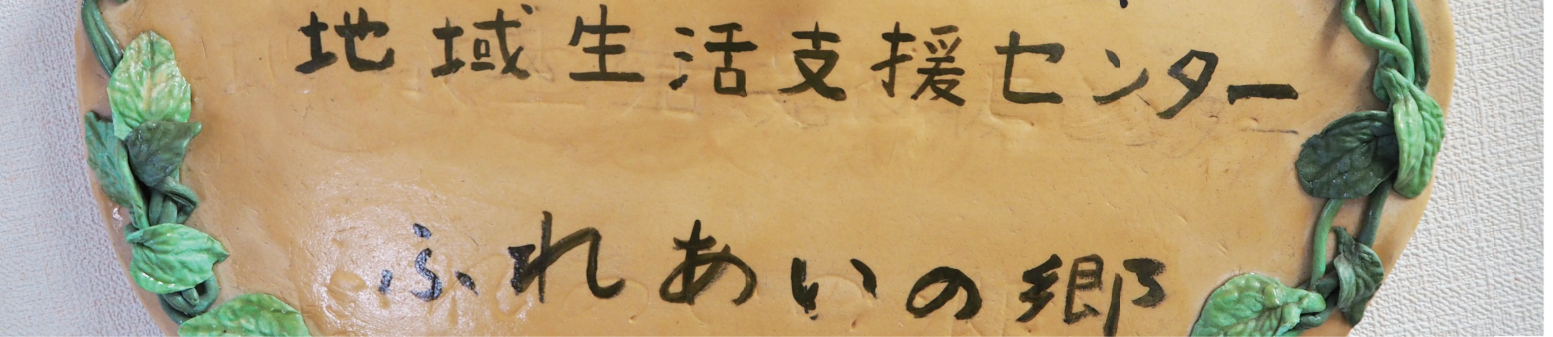 地域生活支援センター
ふれあいの郷